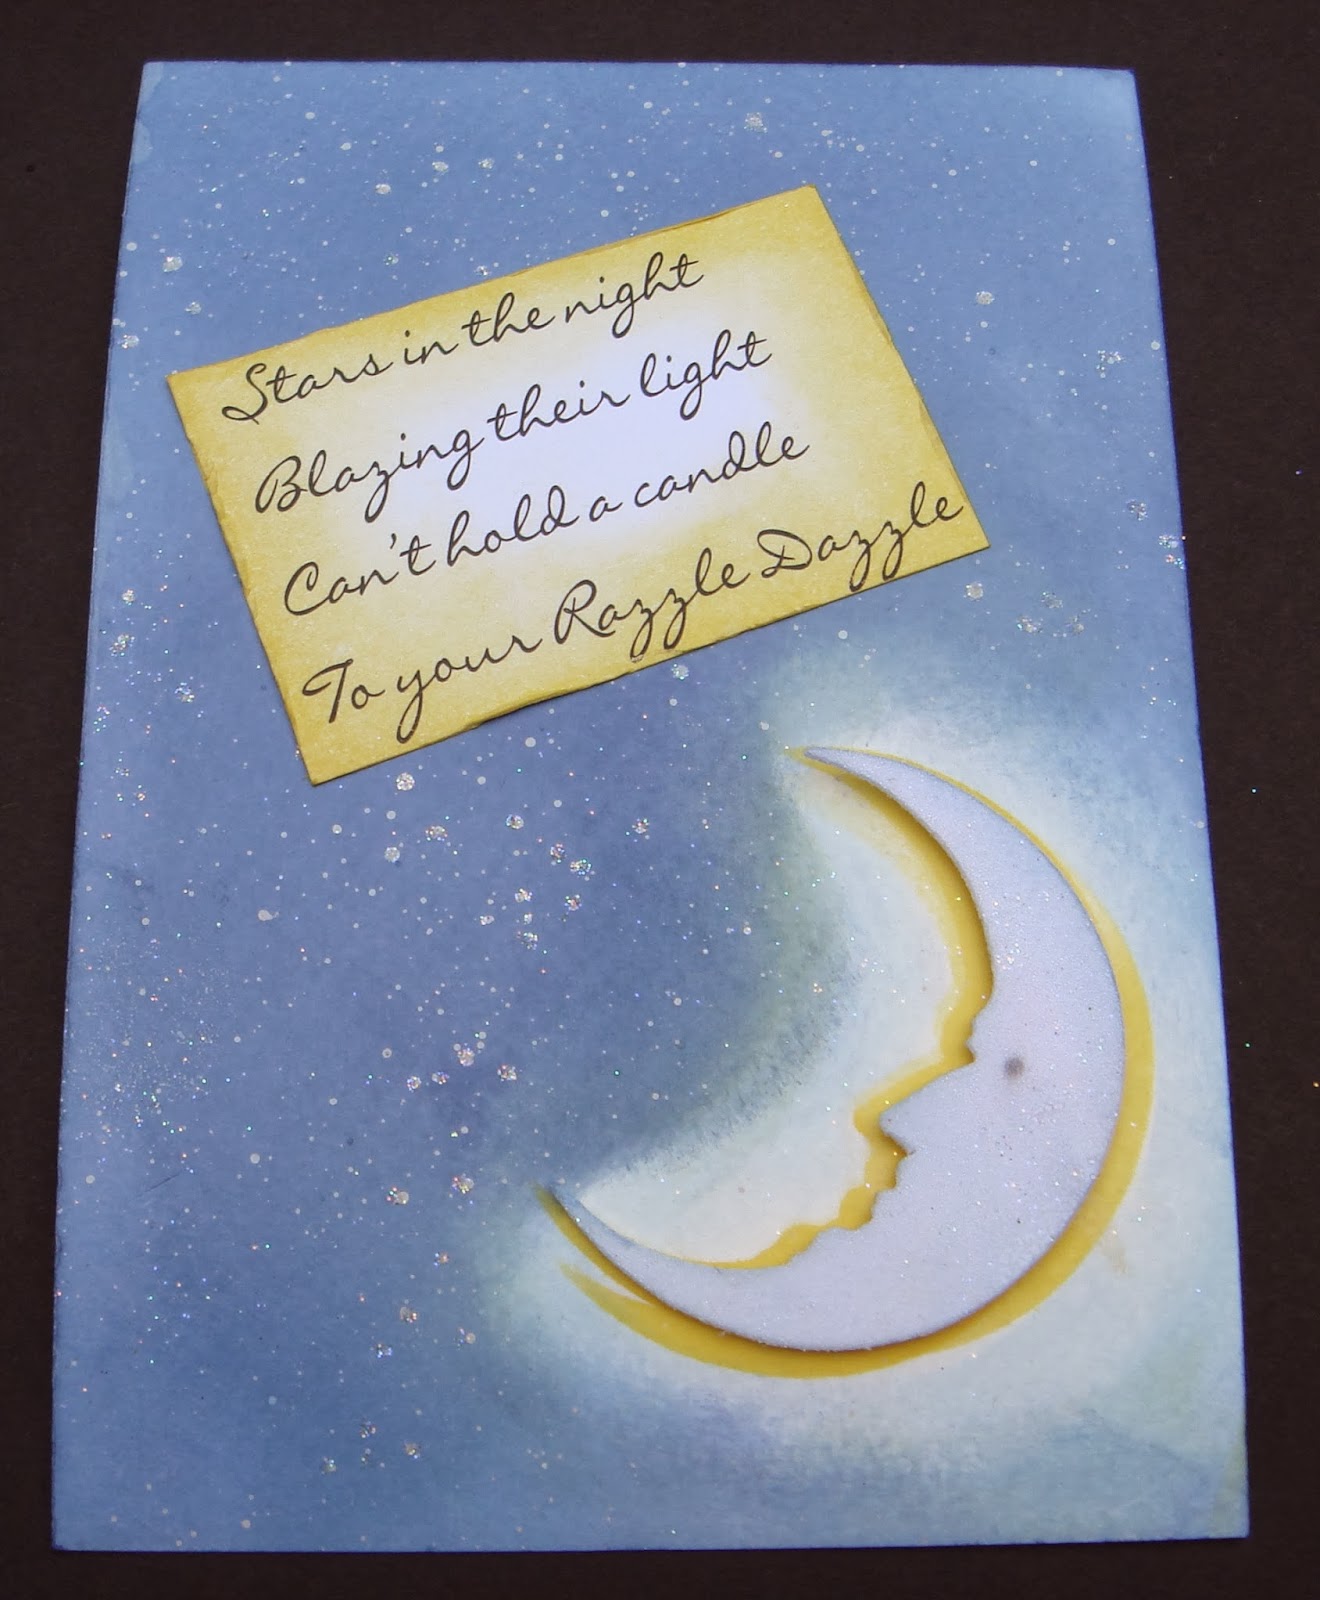 Stars in the night
Blazing their light
Can't hold a candle
To your Razzle Dazzle